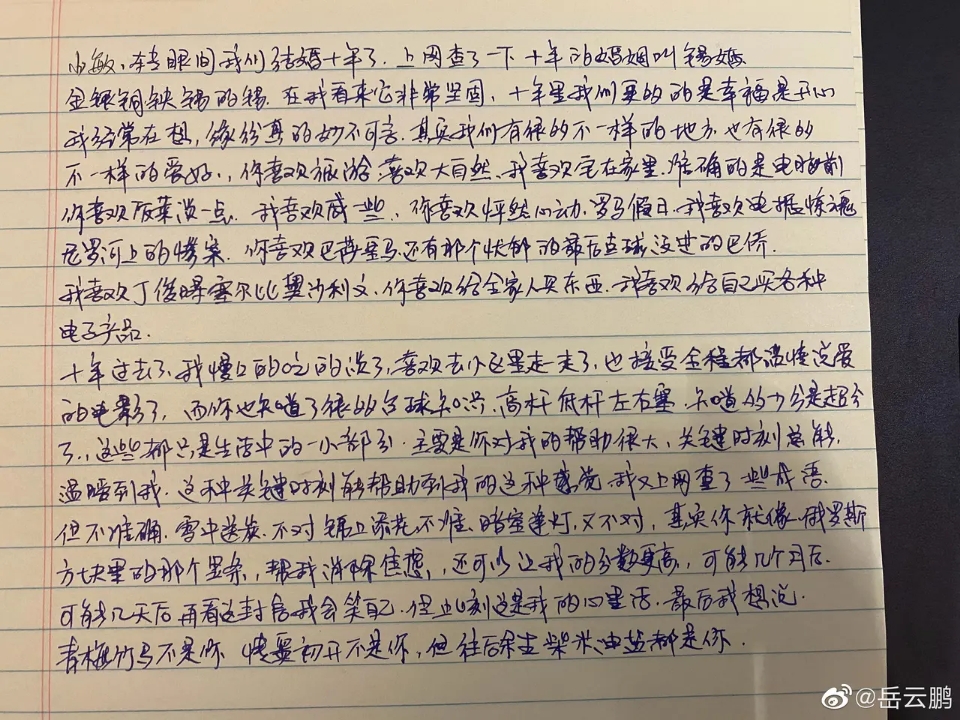 小敏、转眼间我们结婚十年了．上网查了一下 十年的婚姻叫锡婚
金银铜铁锡的锡．在我看来它非常坚固，十年里我们要的的是幸福是开心
我经常在想，缘份真的妙不可言．其实我们有很的不一样的地方．也有很的
不一样的爱好．，你喜欢旅游 喜欢大自然、我喜欢宅在家里．准确的是电脑前
你喜欢饭菜淡一点．我喜欢咸一些．你喜欢怦然心动．罗马假日．我喜欢电锯惊魂
尼罗河上的惨案．你喜欢巴蒂皇马．还有那个忧郁的最后点球没进的巴乔
我喜欢丁俊晖塞尔比奥沙利文．你喜欢给全家人买东西．我喜欢给自己买各种
电子产品．
十年过去了、我慢慢的吃的淡了，喜欢去小区里走一走了，也接受全程都温情说爱
的电影了，而你也知道了很的台球知识．高杆低杆左右塞．知道的少分是超分
了．，这些都只是生活中的一小部分．主要是你对我的帮助很大、关键时刻总能
温暖到我．这种关键时刻能帮助到我的这种感觉．我又上网查了一些成语．
但不准确．雪中送炭．不对 锦上添花．不准．暗室逢灯，又不对，其实你就像俄罗斯
方块里的那个竖条，帮我消除焦虑，还可以让我的分数更高，可能几个月后．
可能几天后 再看这封信我会笑自己．但此刻这是我的心里话．最后我想说．
青梅竹马不是你 情窦初开不是你，但往后余生 柴米油盐都是你．
@岳云鹏